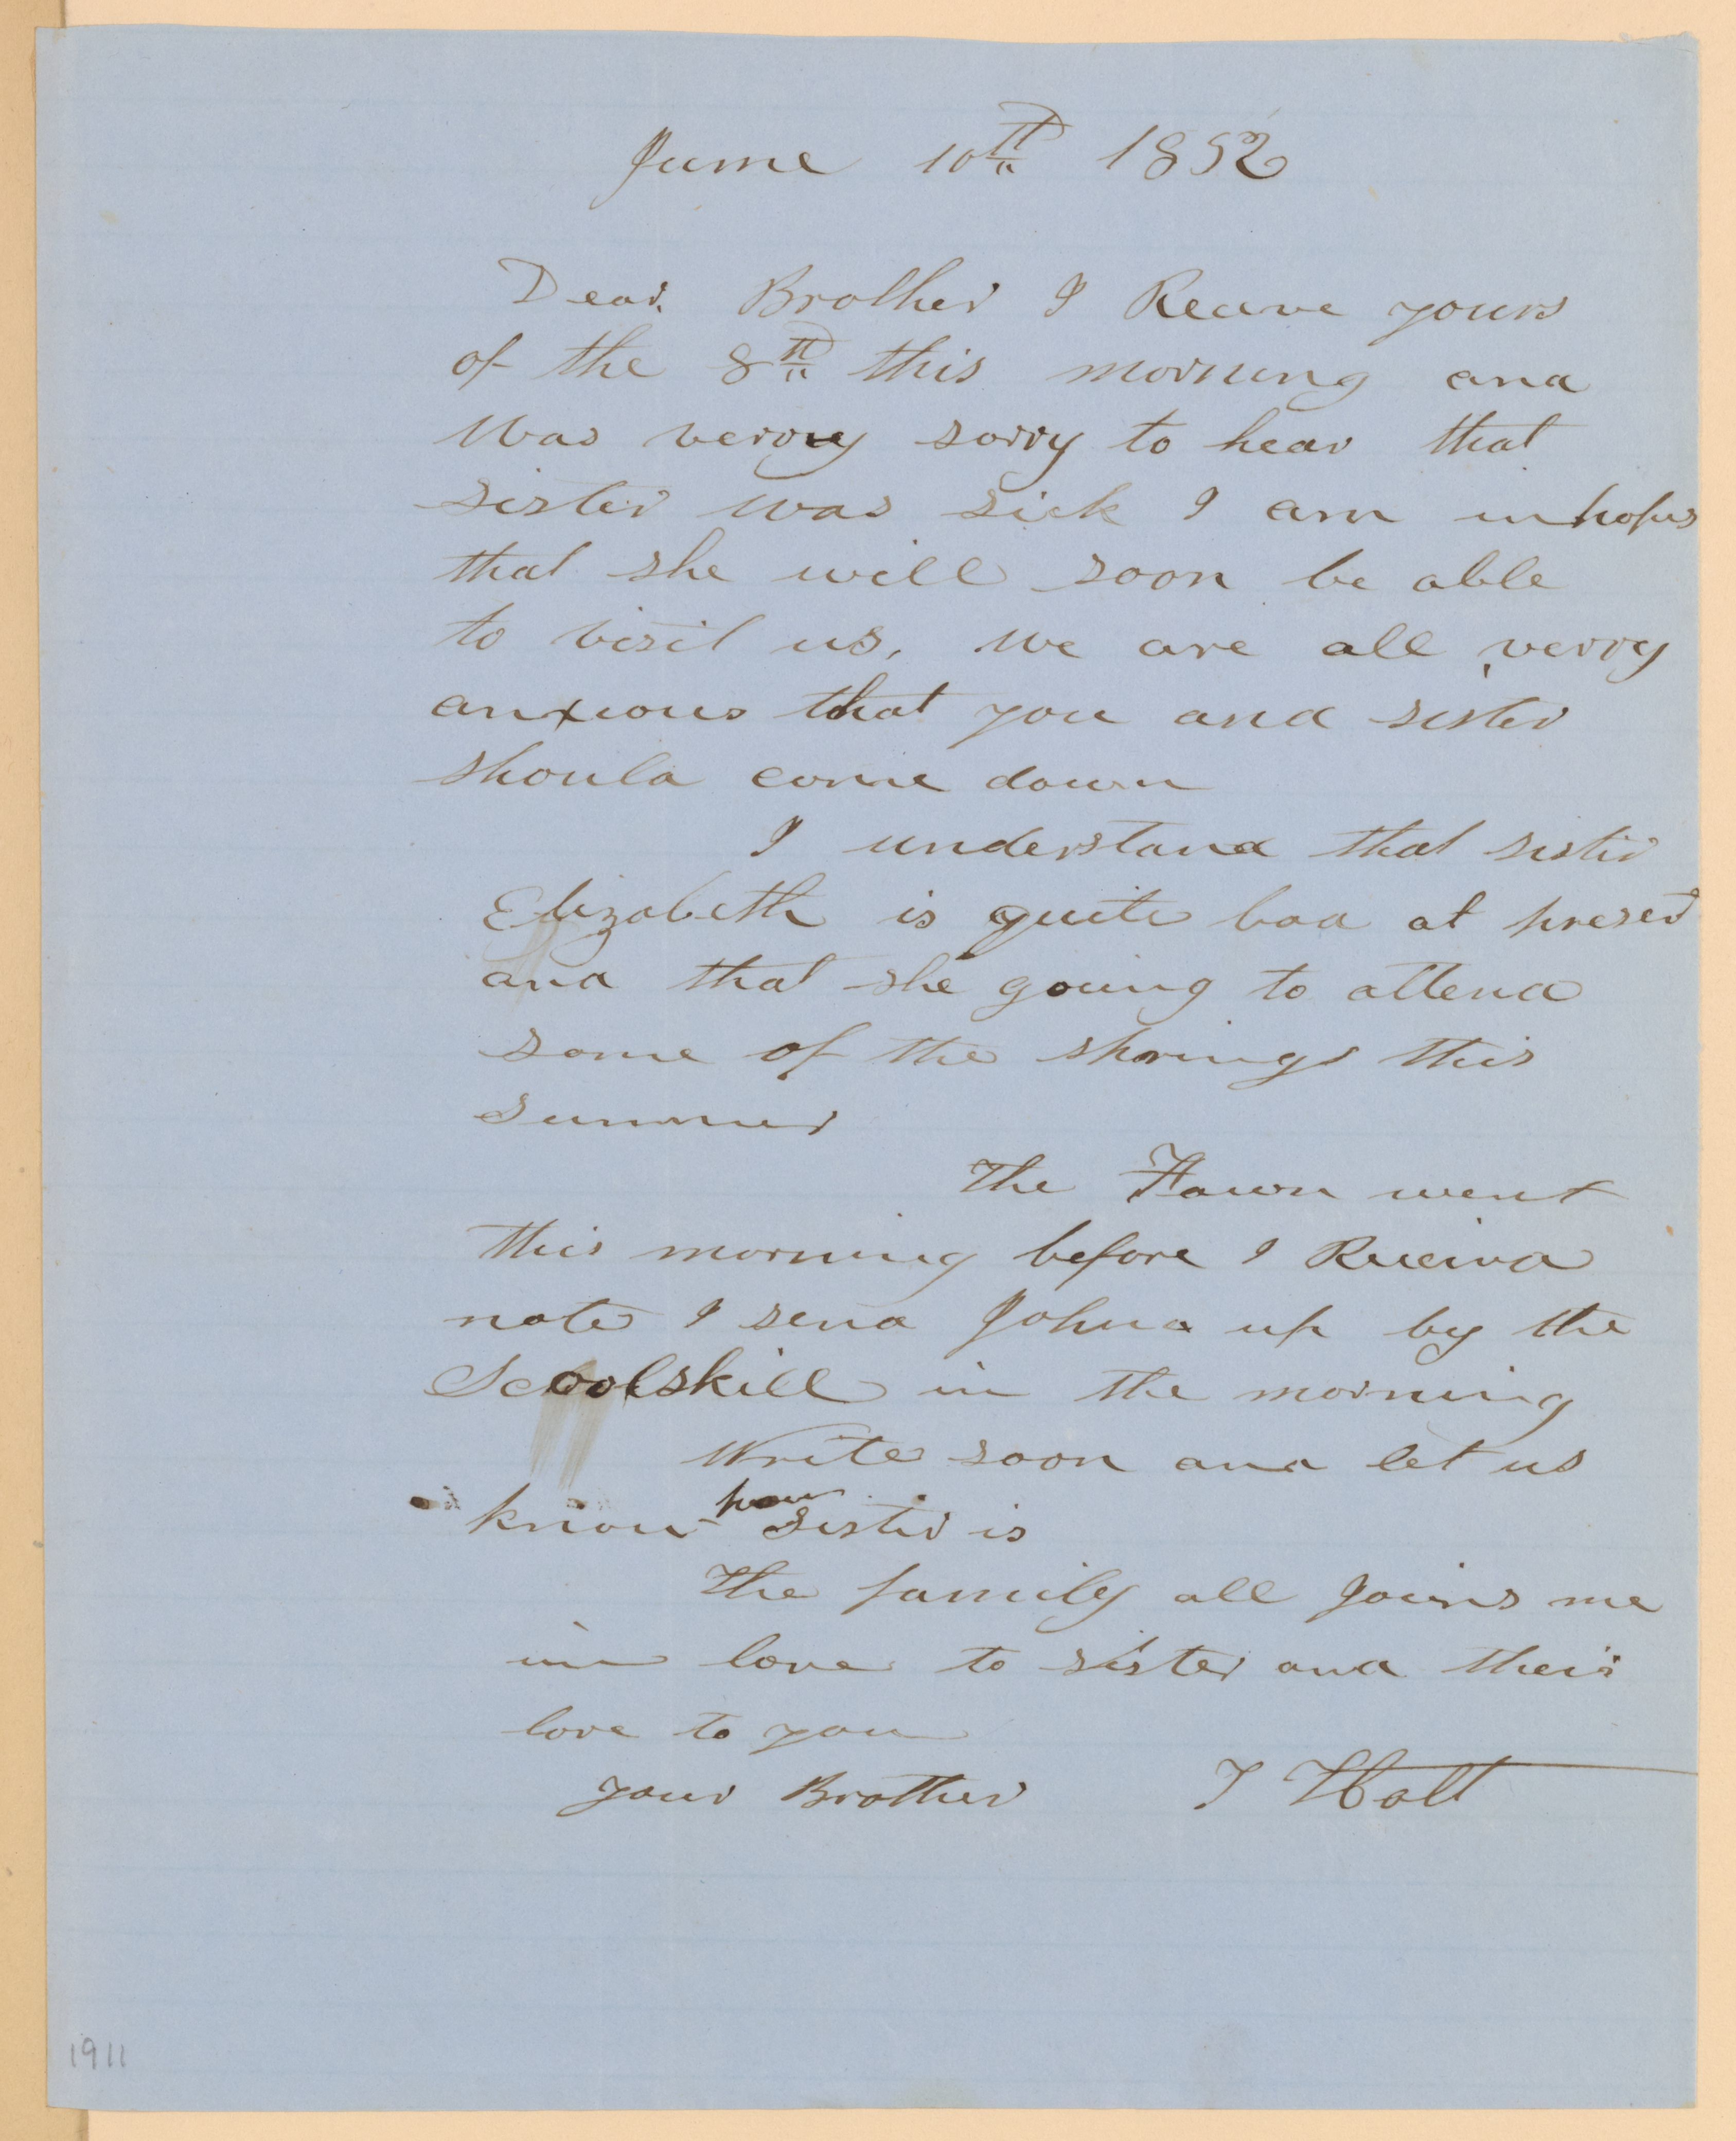 June 10th 1852
Dear Brother I Receive yours
of the 8th this morning and
was verry sorry to hear that
sister was sick I am in hopes
that she will soon be able
to visit us, we are all verry
anxious that you and sister
should come down
I understand that sister
Elizabeth is quite bad at preset
and that she going to attend
some of the springs this
summer
The Fawn went
this morning before I Receivd
note I send John up by the
Scoolskill in the morning
Write soon and let us
know how sister is
The family all Joins me
in love to sister and their
love to you
your Brother T Holt
1911